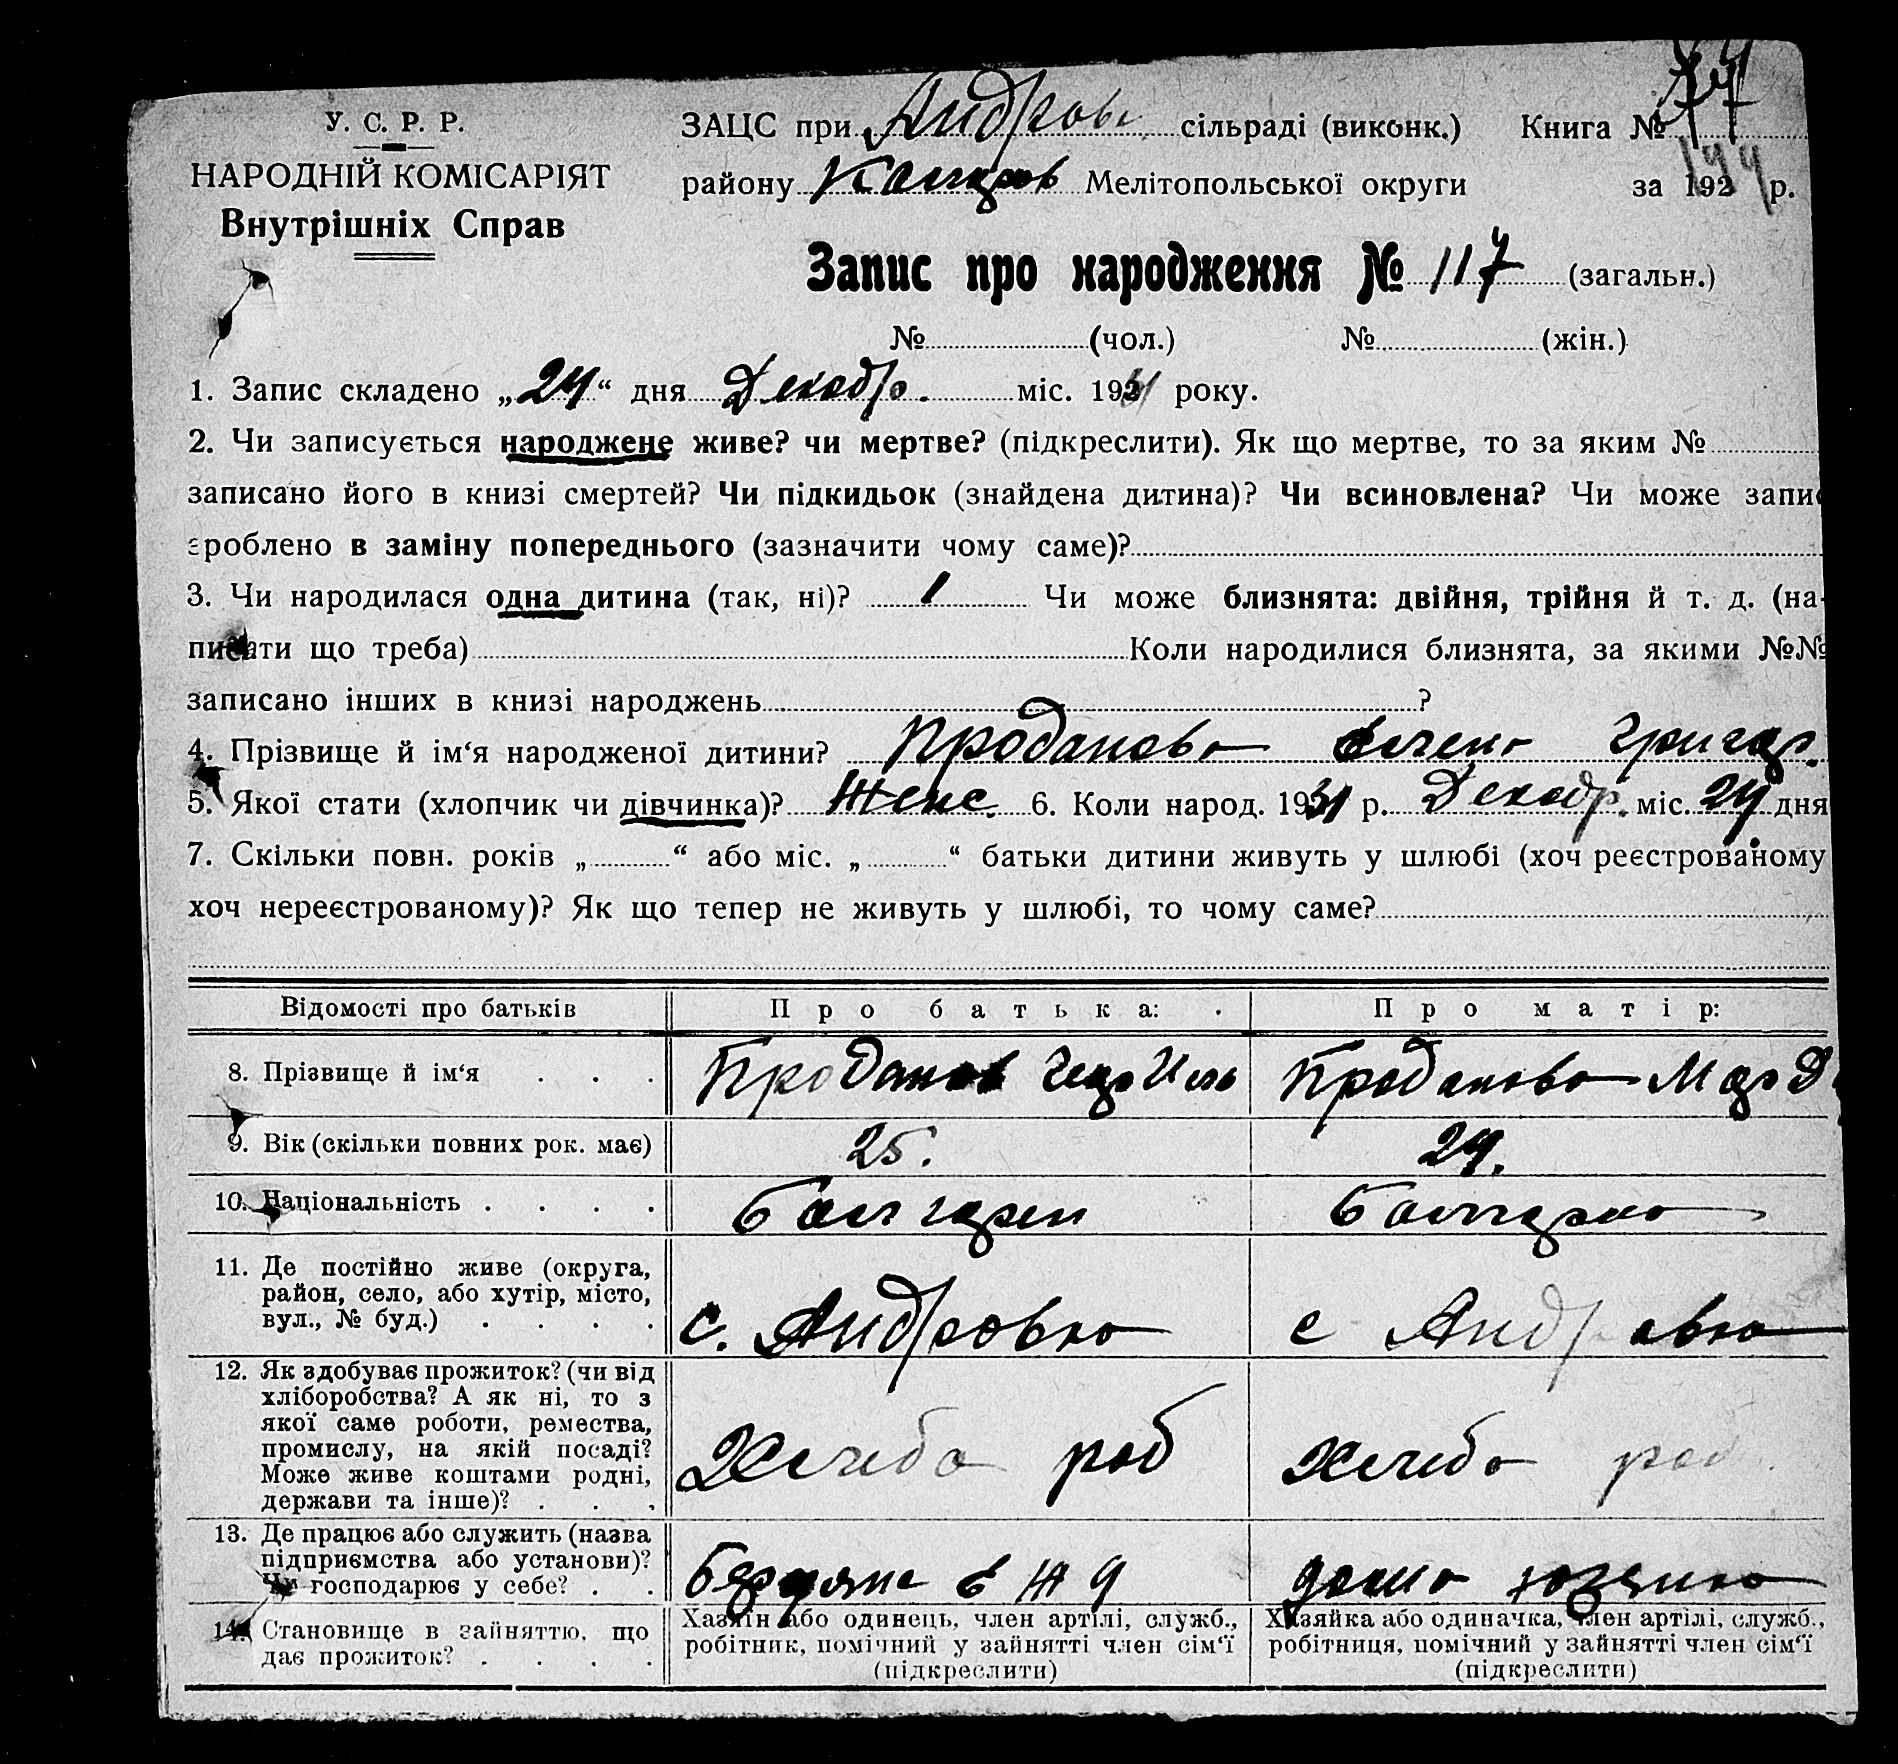 У. С. Р. Р.
НАРОДНІЙ КОМІСАРІЯТ
Внутрішніх Справ
ЗАЦС при Андров. сільраді (виконк.) Книга №
району Мелітопольської округи за 192 р.
Запис про народження № 117 (загальн.)
№ (чол.) № (жін.)
1. Запис складено „24“ дня Декабр. міс. 1931 року.
2. Чи записується народжене живе? чи мертве? (підкреслити). Як що мертве, то за яким №
записано його в книзі смертей? Чи підкидьок (знайдена дитина)? Чи всиновлена? Чи може запис
зроблено в заміну попереднього (зазначити чому саме)?
3. Чи народилася одна дитина (так, ні)? 1 Чи може близнята: двійня, трійня й т. д. (на-
писати що треба) Коли народилися близнята, за якими №№
записано інших в книзі народжень ?
4. Прізвище й ім‘я народженої дитини? Проданова Елена Григор.
5. Якої стати (хлопчик чи дівчинка)? Женс. 6. Коли народ. 1931 р. Декабр. міс. 24. дня
7. Скільки повн. років „ “ або міс. „ “ батьки дитини живуть у шлюбі (хоч реєстрованому
хоч нереєстрованому)? Як що тепер не живуть у шлюбі, то чому саме?
Відомості про батьків Про батька: Про матір:
8. Прізвище й ім‘я . . . Проданов Проданова Мар Д
9. Вік (скільки повних рок. має) 25. 24.
10. Національність . . . . Болгарин Болгарка
11. Де постійно живе (округа,
район, село, або хутір, місто,
вул., № буд.) . . . . с. Андровка с Андровка
12. Як здобуває прожиток? (чи від
хліборобства? А як ні, то з
якої саме роботи, ремества,
промислу, на якій посаді?
Може живе коштами родні,
держави та інше)? . . . Хлебо роб Хлебо роб
13. Де працює або служить (назва
підприємства або установи)?
Чи господарює у себе? . . Бердянс в Ж д дома хозяйка
14. Становище в зайняттю, що
дає прожиток? . . . .
Хазяїн або одинець, член артілі, служб.,
робітник, помічний у зайнятті член сім‘ї
(підкреслити)
Хазяйка або одиначка, член артілі, служб.,
робітниця, помічний у зайнятті член сім‘ї
(підкреслити)